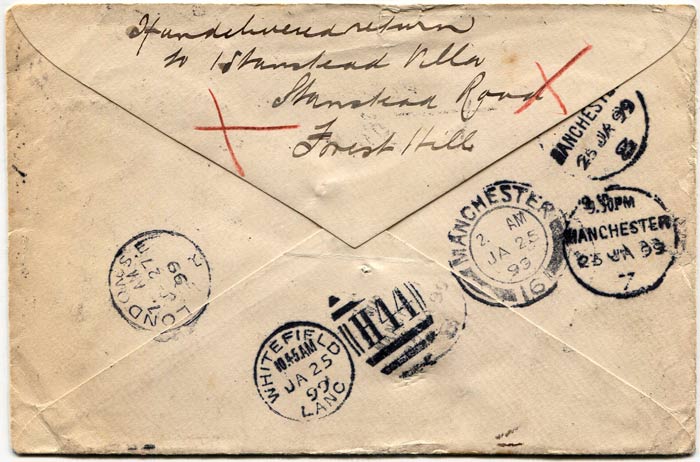 If undelivered return
to 1 Stanstead Villa
Stanstead Road
Forest Hill
MANCHESTER
25 JA 99
8
MANCHESTER
2. AM
JA 25
99
16
9.30PM
MANCHESTER
25 JA 99
7
LONDON. S.E
7. AM
27
99
R
H44
WHITEFIELD
10.45 AM
JA 25
99
LANC